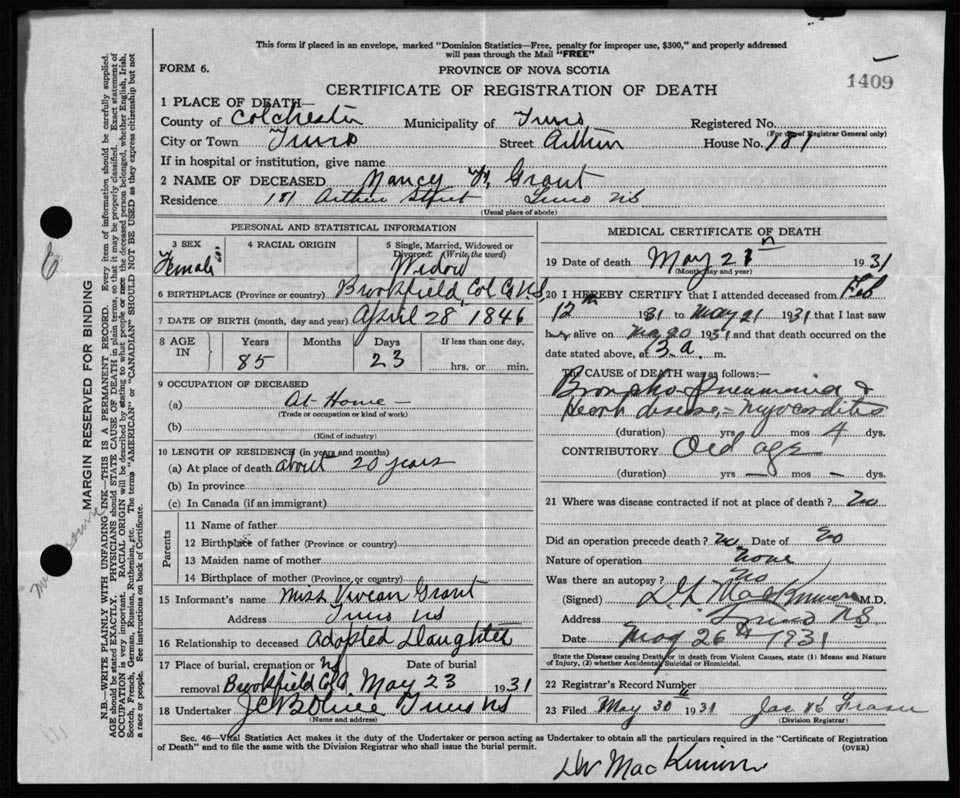 This form if placed in an envelope, marked "Dominion Statistics—Free, penalty for improper use, $300," and properly addressed
will pass through the Mail "FREE"
FORM 6.
PROVINCE OF NOVA SCOTIA
1409
CERTIFICATE OF REGISTRATION OF DEATH
1 PLACE OF DEATH—
County of Colchester Municipality of Truro Registered No.
(For use of Registrar General only)
City or Town Truro Street Arthur House No. 181
If in hospital or institution, give name
2 NAME OF DECEASED Nancy Grant
Residence 181 Arthur Street Truro NS
(Usual place of abode)
PERSONAL AND STATISTICAL INFORMATION
3 SEX Female
4 RACIAL ORIGIN
5 Single, Married, Widowed or
Divorced. (Write the word)
Widow
6 BIRTHPLACE (Province or country) Brookfield, Col Co N.S.
7 DATE OF BIRTH (month, day and year) April 28 1846
8 AGE IN
Years Months Days If less than one day,
85 23 hrs. or min.
9 OCCUPATION OF DECEASED
(a) At Home —
(Trade or occupation or kind of work)
(b)
(Kind of industry)
10 LENGTH OF RESIDENCE (in years and months)
(a) At place of death about 20 years
(b) In province
(c) In Canada (if an immigrant)
Parents
11 Name of father
12 Birthplace of father (Province or country)
13 Maiden name of mother
14 Birthplace of mother (Province or country)
15 Informant's name Miss Vivean Grant
Address Truro NS
16 Relationship to deceased Adopted Daughter
17 Place of burial, cremation or Date of burial
removal Brookfield May 23 1931
18 Undertaker Truro NS
(Name and address)
MEDICAL CERTIFICATE OF DEATH
19 Date of death May 21 1931
(Month, day and year)
20 I HEREBY CERTIFY that I attended deceased from Feb
12th 1931 to May 21 1931 that I last saw
her alive on May 20 1931 and that death occurred on the
date stated above, at 3. a. m.
The CAUSE of DEATH was as follows:—
Broncho Pneumonia &
Heart disease = myocarditis
(duration) yrs mos 4 dys.
CONTRIBUTORY Old age
(duration) yrs — mos — dys.
21 Where was disease contracted if not at place of death? no
Did an operation precede death? no Date of no
Nature of operation none
Was there an autopsy? no
(Signed) MacKinnon M.D.
Address Truro N.S.
Date May 26th 1931
State the Disease causing Death, or in death from Violent Causes, state (1) Means and Nature
of Injury, (2) whether Accidental, Suicidal or Homicidal.
22 Registrar's Record Number
23 Filed May 30 1931 Jas Fraser
(Division Registrar)
Sec. 46—Vital Statistics Act makes it the duty of the Undertaker or person acting as Undertaker to obtain all the particulars required in the "Certificate of Registration
of Death" and to file the same with the Division Registrar who shall issue the burial permit.
(OVER)
MacKinnon
MARGIN RESERVED FOR BINDING
N.B.—WRITE PLAINLY WITH UNFADING INK—THIS IS A PERMANENT RECORD. Every item of information should be carefully supplied.
AGE should be stated EXACTLY. PHYSICIANS should STATE CAUSE OF DEATH in plain terms, so that it may be properly classified. Exact statement of
OCCUPATION is very important. RACIAL ORIGIN will be described by stating to what people or race the deceased person belonged, whether English, Irish,
Scotch, French, German, Russian, Ruthenian, etc. The terms "AMERICAN" or "CANADIAN" SHOULD NOT BE USED as they express citizenship but not
a race or people. See instructions on back of Certificate.